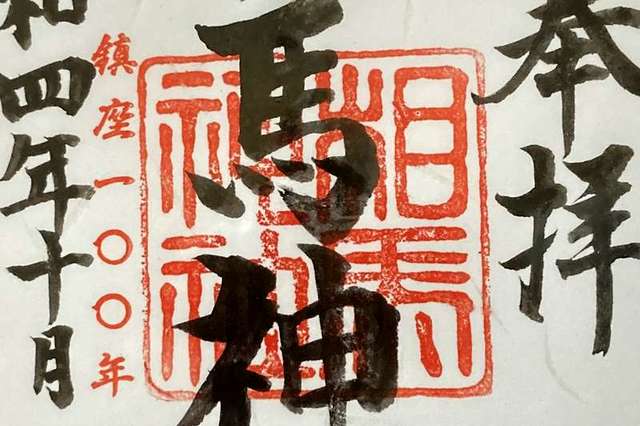 奉拝
馬神
相馬
神社
鎮座一〇〇年
和四年十月